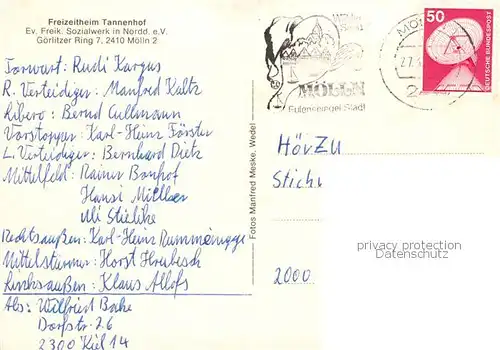 Freizeitheim Tannenhof
Ev. Freik. Sozialwerk in Nordd. e.V.
Görlitzer Ring 7, 2410 Mölln 2
Torwart: Rudi Kargus
R. Verteidiger: Manfred Kaltz
Libero: Bernd Cullmann
Vorstopper: Karl-Heinz Förster
L. Verteidiger: Bernhard Dietz
Mittelfeld: Rainer Bonhof
Hansi Müller
Uli Stielike
Rechtsaußen: Karl-Heinz Rummenigge
Mittelstürmer: Horst Hrubesch
Linksaußen: Klaus Allofs
Abs: Wilfried Bake
Dorfstr. 26
2300 Kiel 14
Fotos Manfred Meske, Wedel
MÖLLN
Eulenspiegel-Stadt
50
DEUTSCHE BUNDESPOST
HÖRZU
Stich
2000
privacy protection
Datenschutz